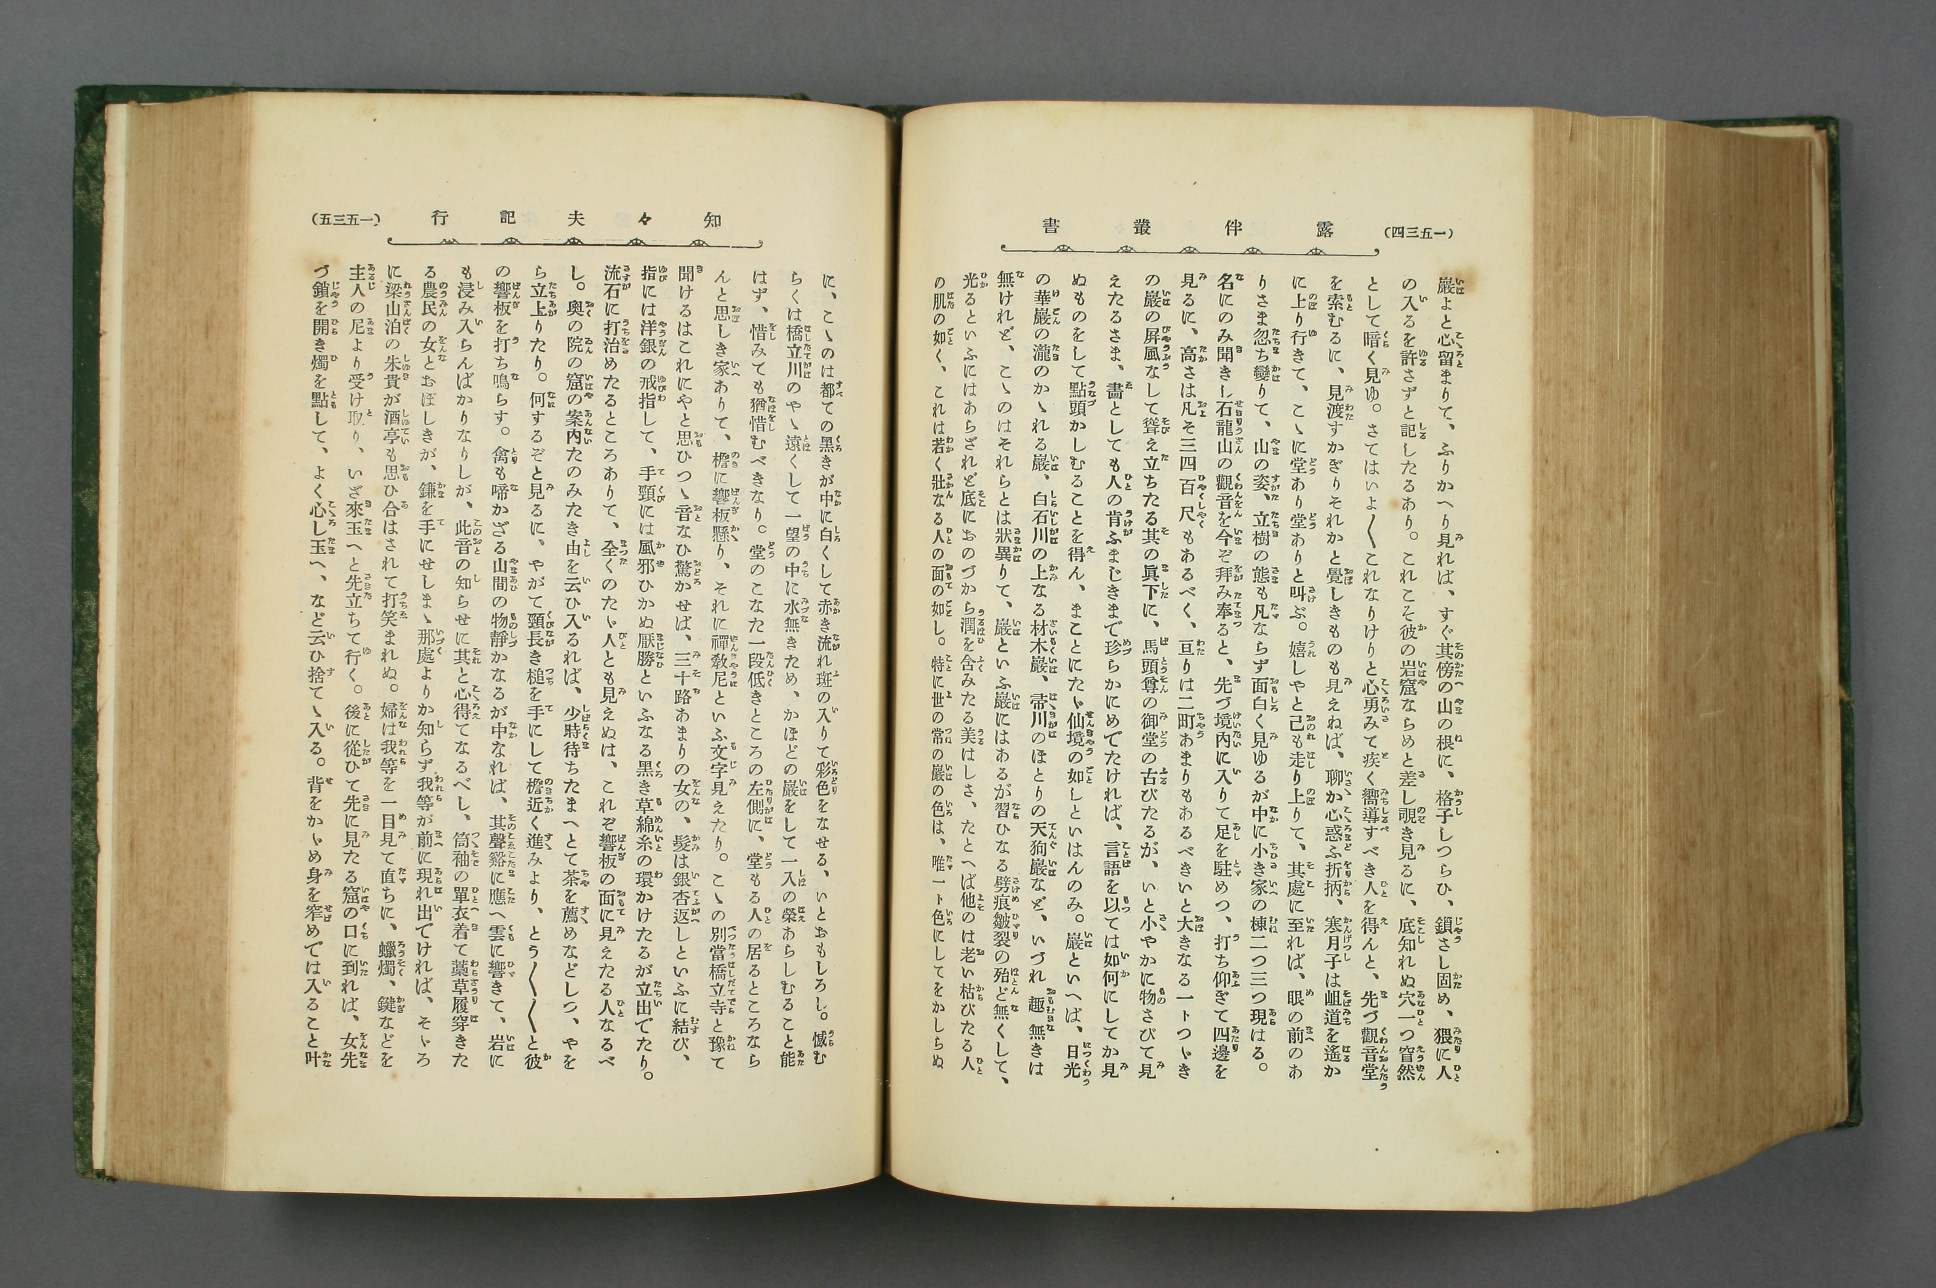 露伴叢書
(一五三四)
巖よと心留まりて、ふりかへり見れば、すぐ其傍の山の根に、格子しつらひ、鎖さし固め、猥に人
の入るを許さずと記したるあり。これこそ彼の岩窟ならめと差し覗き見るに、底知れぬ穴一つ窅然
として暗く見ゆ。さてはいよ〳〵これなりけりと心勇みて疾く嚮導すべき人を得んと、先づ觀音堂
を索むるに、見渡すかぎりそれかと覺しきものも見えねば、聊か心惑ふ折柄、寒月子は岨道を遙か
に上り行きて、こゝに堂あり堂ありと叫ぶ。嬉しやと己も走り上りて、其處に至れば、眼の前のあ
りさま忽ち變りて、山の姿、立樹の態も凡ならず面白く見ゆるが中に小き家の棟二つ三つ現はる。
名にのみ聞きし石龍山の觀音を今ぞ拜み奉ると、先づ境內に入りて足を駐めつ、打ち仰ぎて四邊を
見るに、高さは凡そ三四百尺もあるべく、亘りは二町あまりもあるべきいと大きなる一トつゞき
の巖の屏風なして聳え立ちたる其の眞下に、馬頭尊の御堂の古びたるが、いと小やかに物さびて見
えたるさま、畵としても人の肯ふまじきまで珍らかにめでたければ、言語を以ては如何にしてか見
ぬものをして點頭かしむることを得ん、まことにたゞ仙境の如しといはんのみ。巖といへば、日光
の華嚴の瀧のかゝれる巖、白石川の上なる材木巖、帚川のほとりの天狗巖など、いづれ趣無きは
無けれど、こゝのはそれらとは狀異りて、巖といふ巖にはあるが習ひなる劈痕皺裂の殆ど無くして、
光るといふにはあらざれど底におのづから潤を含みたる美はしさ、たとへば他のは老い枯びたる人
の肌の如く、これは若く壯なる人の面の如し。特に世の常の巖の色は、唯一ト色にしてをかしらぬ
知々夫記行
(一五三五)
に、こゝのは都ての黑きが中に白くして赤き流れ斑の入りて彩色をなせる、いとおもしろし。憾む
らくは橋立川のやゝ遠くして一望の中に水無きため、かほどの巖をして一入の榮あらしむること能
はず、惜みても猶惜むべきなり。堂のこなた一段低きところの左側に、堂もる人の居るところなら
んと思しき家ありて、檐に響板懸り、それに禪敎尼といふ文字見えたり。こゝの別當橋立寺と豫て
聞けるはこれにやと思ひつゝ音なひ驚かせば、三十路あまりの女の、髮は銀杏返しといふに結び、
指には洋銀の戒指して、手頸には風邪ひかぬ厭勝といふなる黑き草綿糸の環かけたるが立出でたり。
流石に打治めたるところありて、全くのたゞ人とも見えぬは、これぞ響板の面に見えたる人なるべ
し。奧の院の窟の案內たのみたき由を云ひ入るれば、少時待ちたまへとて茶を薦めなどしつ、やを
ら立上りたり。何するぞと見るに、やがて頸長き槌を手にして檐近く進みより、とう〳〵〳〵と彼
の響板を打ち鳴らす。禽も啼かざる山間の物靜かなるが中なれば、其聲谿に應へ雲に響きて、岩に
も浸み入らんばかりなりしが、此音の知らせに其と心得てなるべし、筒袖の單衣着て藁草履穿きた
る農民の女とおぼしきが、鎌を手にせしまゝ那處よりか知らず我等が前に現れ出でければ、そゞろ
に梁山泊の朱貴が酒亭も思ひ合はされて打笑まれぬ。婦は我等を一目見て直ちに、蠟燭、鍵などを
主人の尼より受け取り、いざ來玉へと先立ちて行く。後に從ひて先に見たる窟の口に到れば、女先
づ鎖を開き燭を點して、よく心し玉へ、など云ひ捨てゝ入る。背をかゞめ身を窄めでは入ること叶